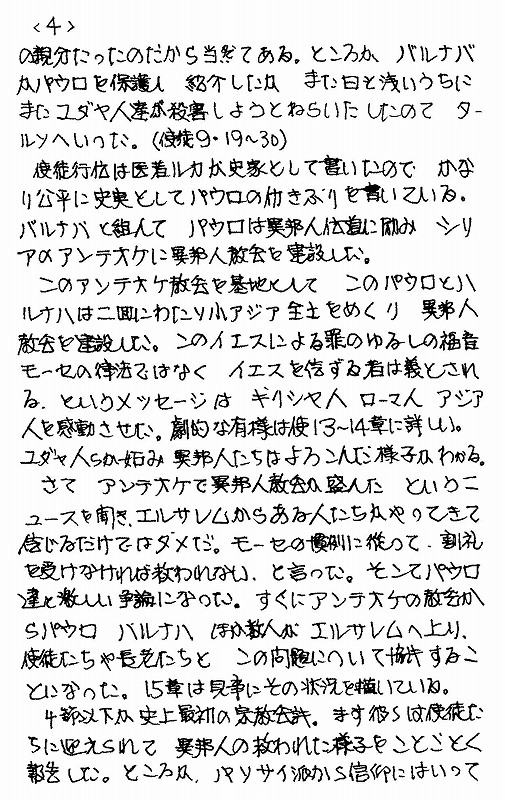 <4>
の親分だったのだから当然である。ところが バルナバ
がパウロを保護し 紹介したが まだ日も浅いうちに
またユダヤ人達が殺害しようとねらいだしたので タ-
ルソへいった。(使徒9・19~30)
使徒行伝は医者ルカが史家として書いたので かな
り公平に史実としてパウロの付きぶりを書いている。
バルナバと組んで パウロは異邦人伝道に励み シリ
アのアンテオケに異邦人教会を建設した。
このアンテオケ教会を基地として このパウロとバ
ルナバは二回にわたり小アジア全土をめぐり 異邦人
教会を建設した。このイエスによる罪のゆるしの福音
モーセの律法ではなく イエスを信ずる者は義とされ
る、というメッセージは ギリシヤ人 ローマ人 アジア
人を感動させた。劇的な有様は使13~14章に詳しい。
ユダヤ人らが妬み 異邦人たちはよろこんだ様子がわかる。
さて アンテオケで異邦人教会が盛んだ というニ
ュースを聞き、エルサレムからある人たちがやってきて
信じるだけではダメだ。モーセの慣例に従って、割礼
を受けなければ救われない、と言った。そこでパウロ
達と激しい争論になった。すぐにアンテオケの教会か
らパウロ バルナバ ほか数人が エルサレムへ上り、
使徒たちや長老たちと この問題について協議するこ
とになった。15章は見事にその状況を描いている。
4節以下が史上最初の宗教会議。まず彼らは使徒た
ちに迎えられて 異邦人の救われた様子をことごとく
報告した。ところが、パリサイ派から信仰にはいって